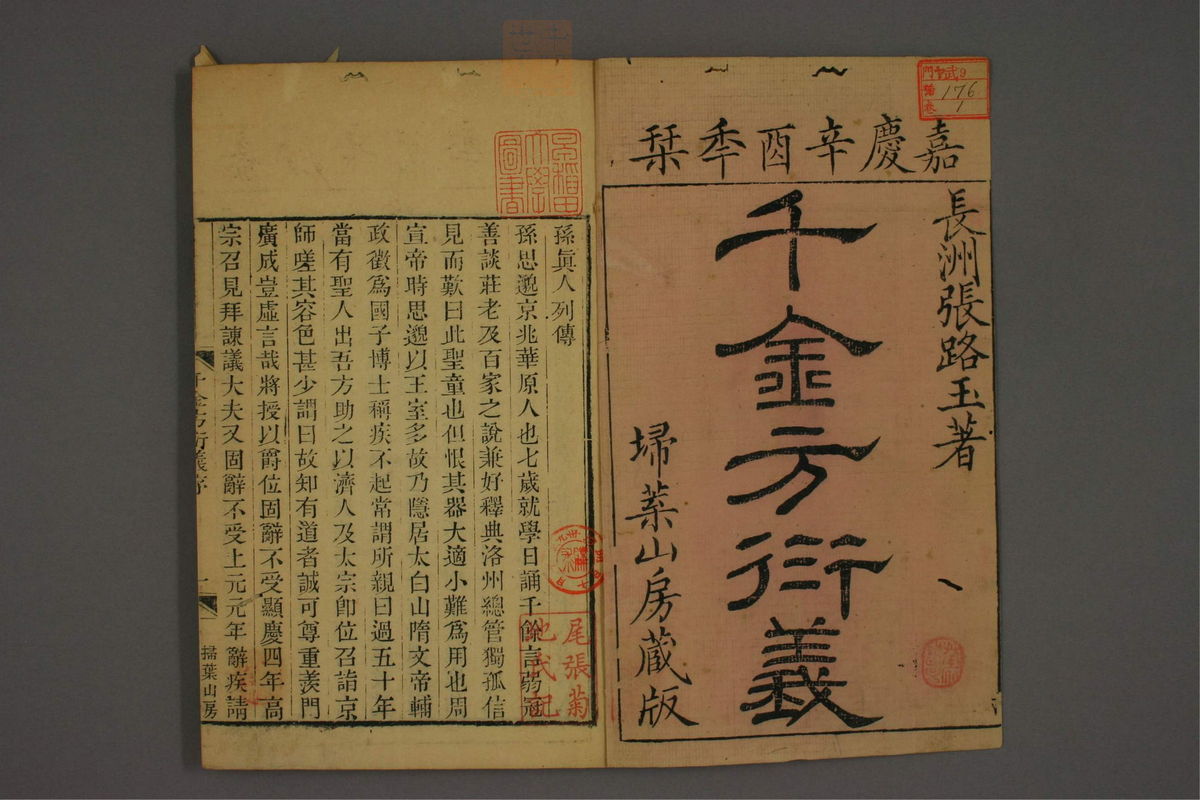 嘉慶辛酉秊栞
長洲張路玉著
千金方衍義
埽葉山房藏版
孫眞人列傳
孫思邈京兆華原人也七歲就學日誦千餘言弱冠
善談莊老及百家之說兼好釋典洛州總管獨孤信
見而歎曰此聖童也但恨其器大適小難爲用也周
宣帝時思邈以王室多故乃隱居太白山隋文帝輔
政徵爲國子博士稱疾不起常謂所親曰過五十年
當有聖人出吾方助之以濟人及太宗卽位召詣京
師嗟其容色甚少謂曰故知有道者誠可尊重羨門
廣成豈虛言哉將授以爵位固辭不受顯慶四年高
宗召見拜諫議大夫又固辭不受上元元年辭疾請
千金方衍義序
一
掃葉山房
尾張菊
池武記
176
1